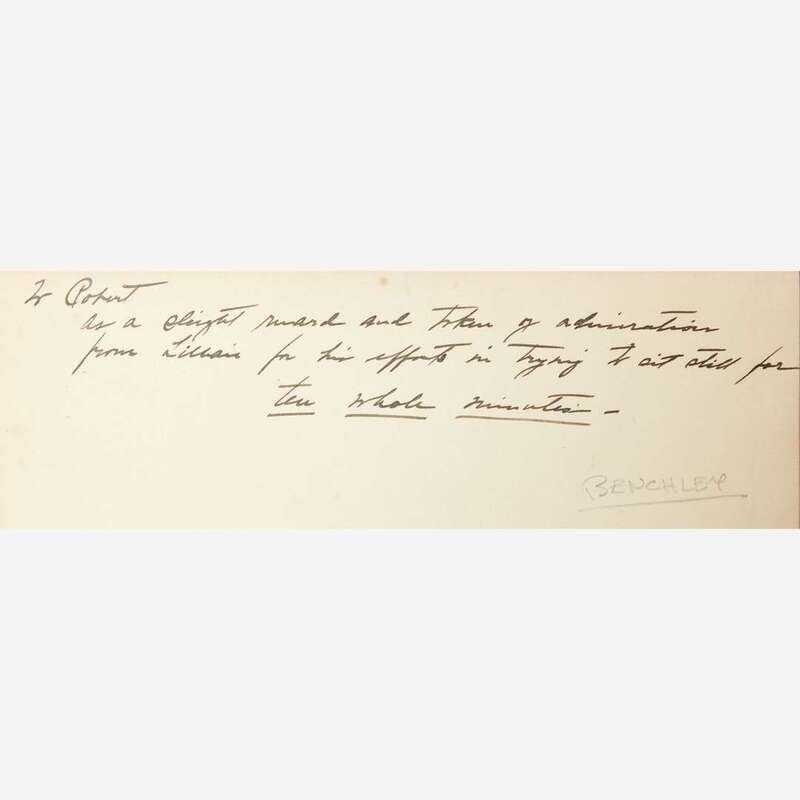 To Robert
as a slight reward and token of admiration
from Lillian for his efforts in trying to sit still for
ten whole minutes –
BENCHLEY